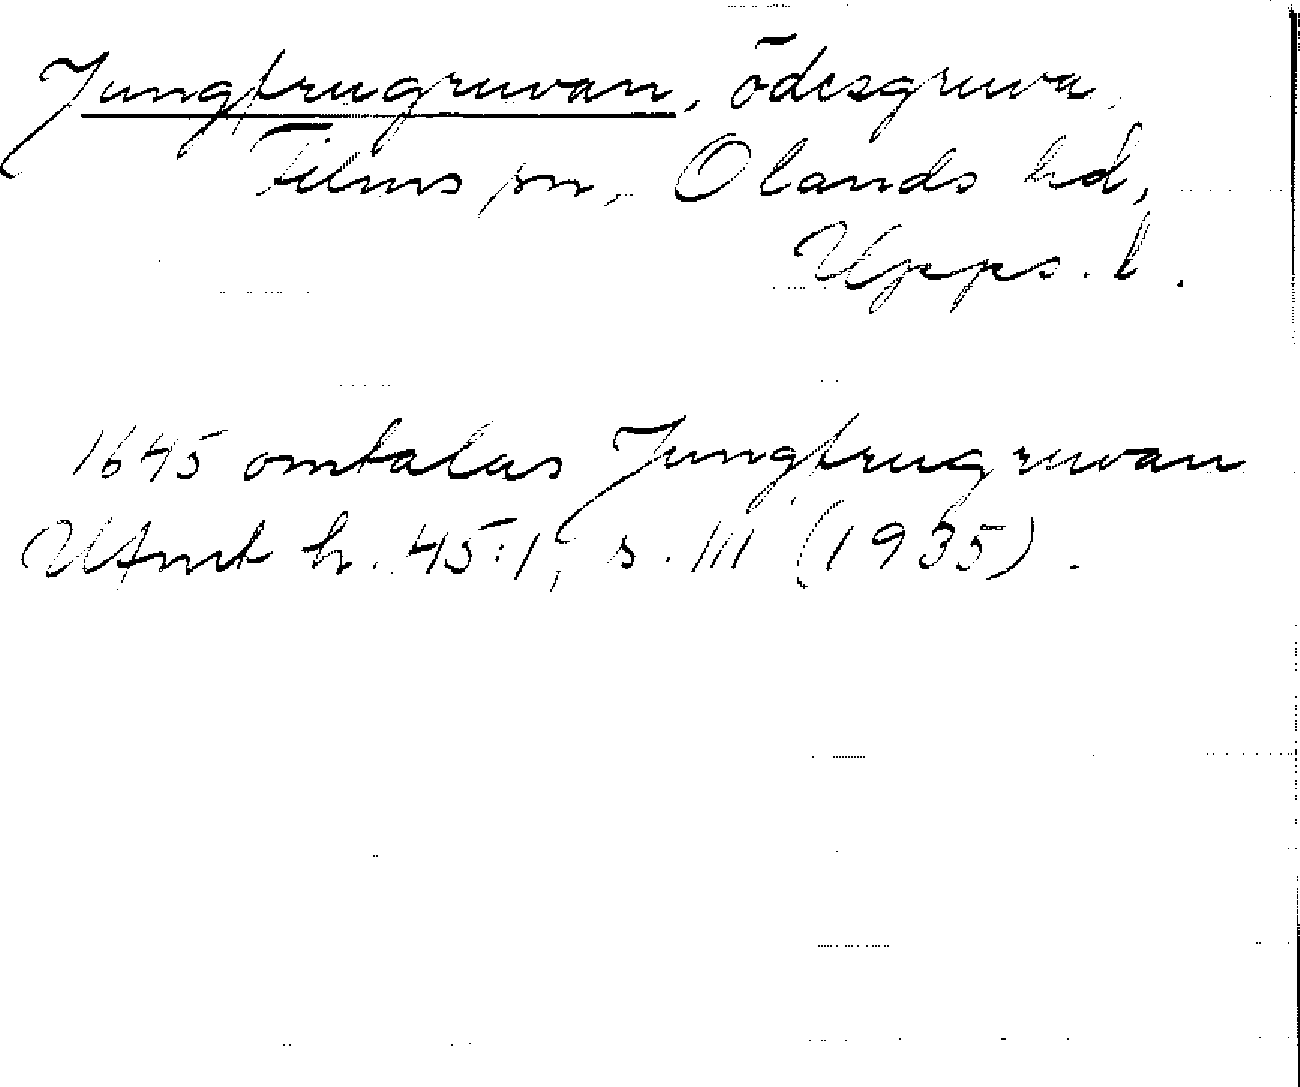 Jungfrugruvan, ödesgruva,
Films sn, Olands hd,
Upps. l.
1645 omtalas Jungfrugruvan
Ufmt h. 45:1, s. 111 (1935).